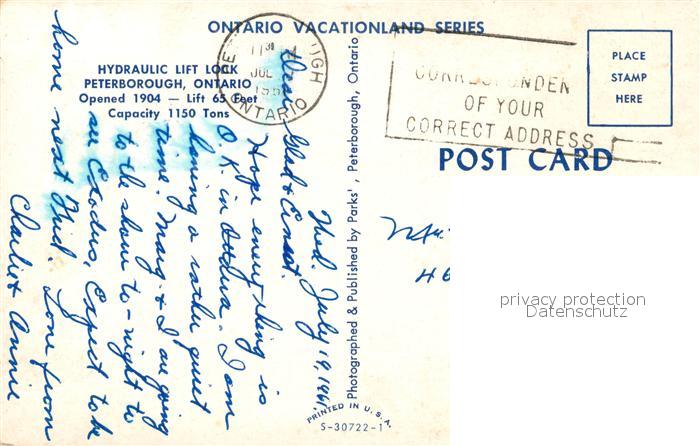 ONTARIO VACATIONLAND SERIES
HYDRAULIC LIFT LOCK
PETERBOROUGH, ONTARIO
Opened 1904 — Lift 65 Feet
Capacity 1150 Tons
ONTARIO
CORRESPONDEN
OF YOUR
CORRECT ADDRESS
PLACE
STAMP
HERE
POST CARD
Wed. July 19, 1961.
Dear Glad & Ernest.
Hope everything is
O.K. in Ottawa. I am
having a rather quiet
time. Marg. & I are going
to the show to-night to
see Exodus. Expect to be
home next Wed. Love from
Charlie & Annie
Photographed & Published by Parks', Peterborough, Ontario
PRINTED IN U.S.A.
S-30722-1
privacy protection
Datenschutz